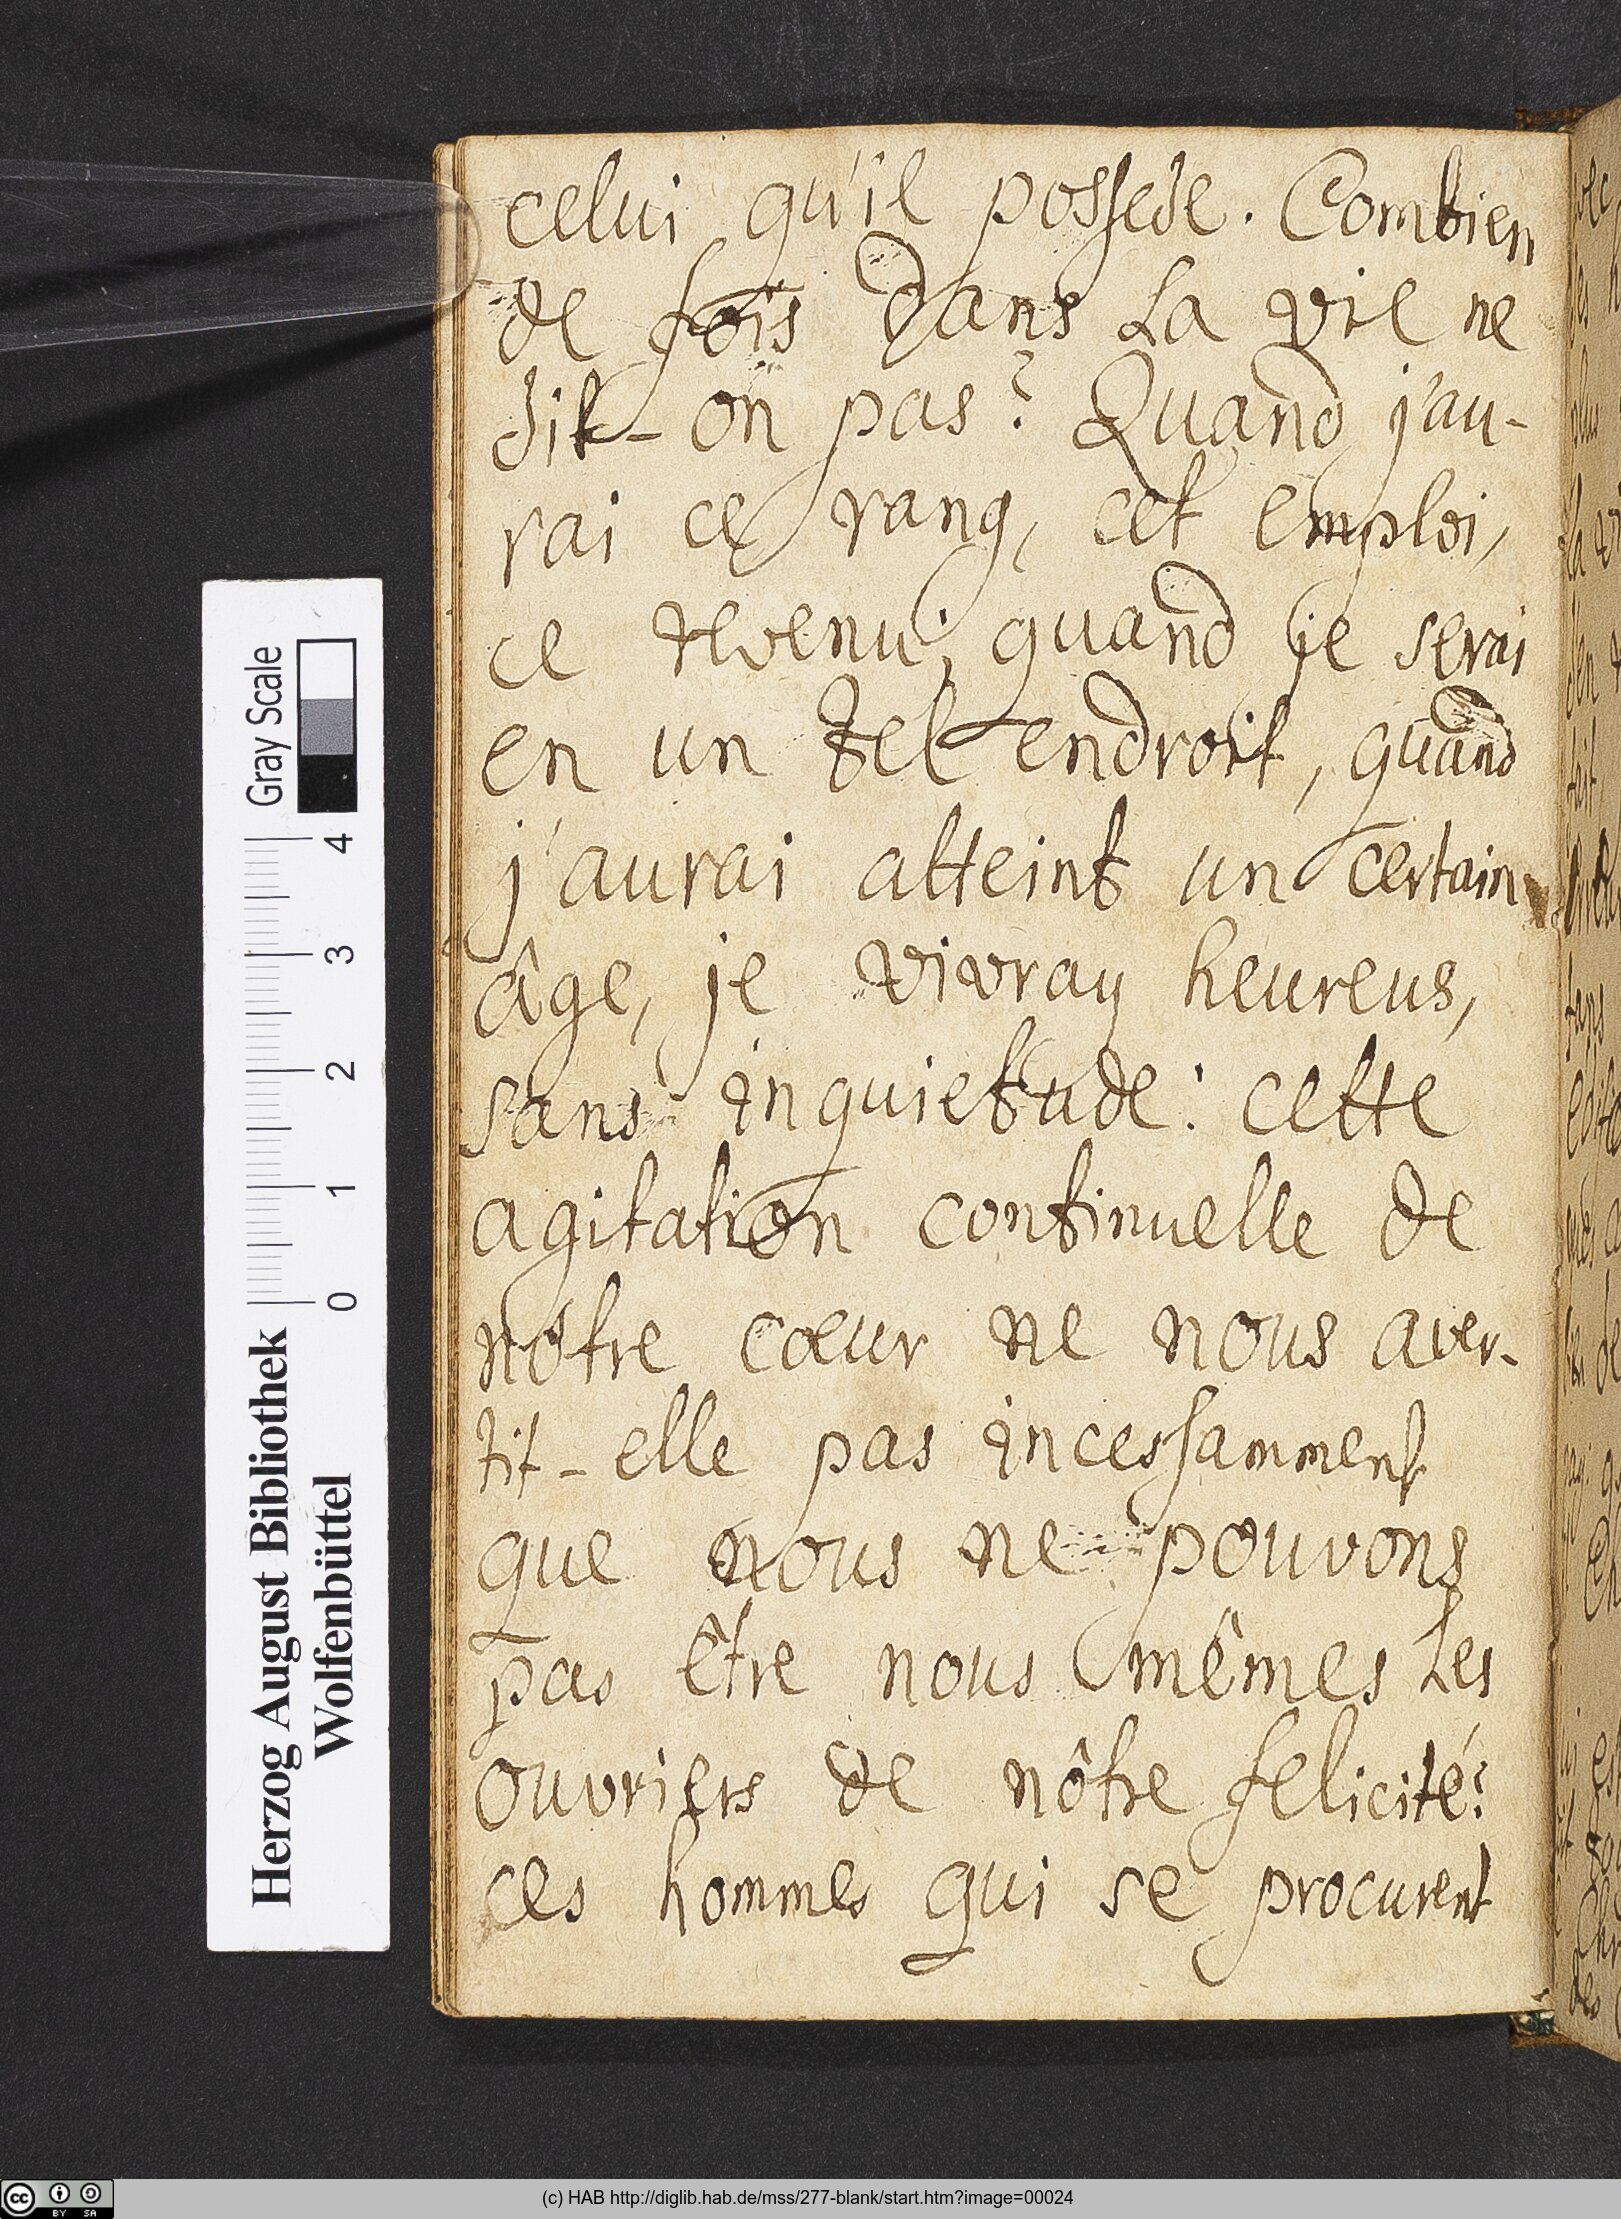 celui qu'il possede. Combien
de fois dans La vie ne
dit-on pas? Quand j'au-
rai ce rang, cet emploi,
ce revenu; quand je serai
en un tel endroit, quand
j'aurai atteint un certain
âge, je vivray heureus,
sans inquietude: cette
agitation continuelle de
nôtre cœur ne nous aver-
tit-elle pas incessamment
que nous ne pouvons
pas être nous mêmes Les
ouvriers de nôtre felicité?
ces hommes qui se procurent
Gray Scale
4
3
2
1
0
Herzog August Bibliothek
Wolfenbüttel
(c) HAB http://diglib.hab.de/mss/277-blank/start.htm?image=00024
cc BY SA